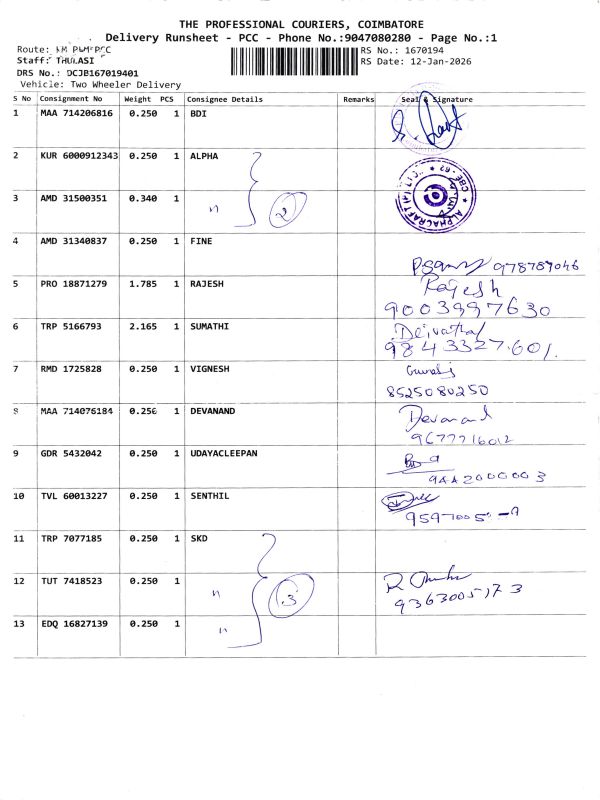 THE PROFESSIONAL COURIERS, COIMBATORE
Delivery Runsheet - PCC - Phone No.:9047080280 - Page No.:1
Route: PCC
RS No.: 1670194
Staff: THULASI
RS Date: 12-Jan-2026
DRS No.: DCJB167019401
Vehicle: Two Wheeler Delivery
S No Consignment No Weight PCS Consignee Details Remarks Seal & Signature
1 MAA 714206816 0.250 1 BDI
2 KUR 6000912343 0.250 1 ALPHA
3 AMD 31500351 0.340 1 " 2
4 AMD 31340837 0.250 1 FINE
5 PRO 18871279 1.785 1 RAJESH Rajesh
9003997630
6 TRP 5166793 2.165 1 SUMATHI
9843327601
7 RMD 1725828 0.250 1 VIGNESH
8525080250
8 MAA 714076184 0.250 1 DEVANAND Devanand
9677716012
9 GDR 5432042 0.250 1 UDAYACLEEPAN
9442000003
10 TVL 60013227 0.250 1 SENTHIL
11 TRP 7077185 0.250 1 SKD
12 TUT 7418523 0.250 1 " 3
9363005173
13 EDQ 16827139 0.250 1 "